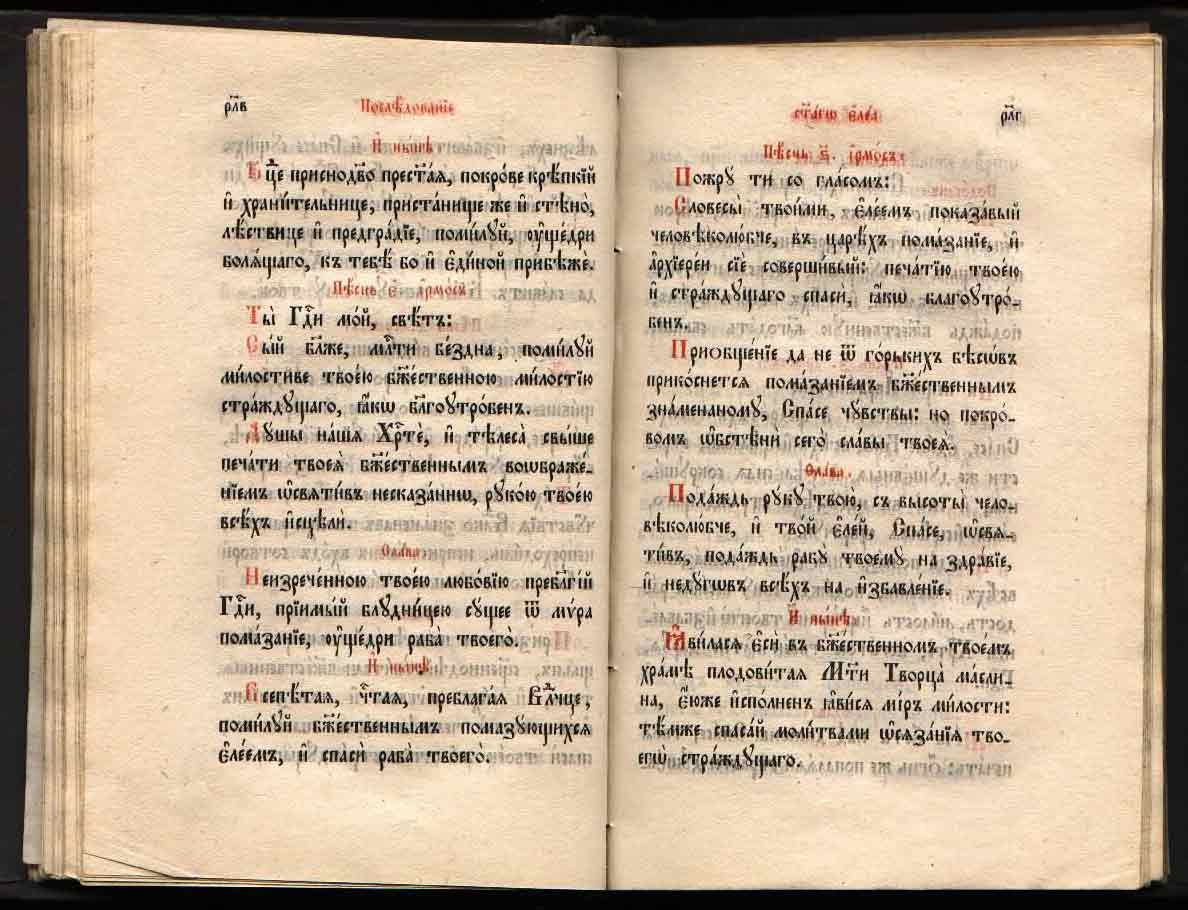 рл҃в
Послѣ́дованїе
И҆ ны́нѣ
Бц҃е приснодв҃о прест҃а́я, покро́ве крѣ́пкїй
и҆ храни́тельнице, приста́нище же и҆ стѣно̀,
лѣ́ствице и҆ предгра́дїе, поми́луй, ᲂу҆ще́дри
боля́щаго, къ тебѣ́ бо и҆ є҆ди́ной прибѣ́же.
Пѣ́снь є҃ і҆рмо́съ
Ты̀ Гдⷭ҇и мо́й, свѣ́тъ:
Сы́й бл҃же, млⷭ҇ти бе́здна, поми́луй
ми́лостиве твое́ю бжⷭ҇е́ственною ми́лостїю
стра́ждущаго, ꙗ҆́кѡ бл҃гоутро́бенъ.
Ду́шы на́шя Хрⷭ҇те́, и҆ тѣлеса̀ свы́ше
печа́ти твоея̀ бжⷭ҇е́ственнымъ воѡбраже́-
нїемъ ѡ҆святи́въ несказа́ннѡ, руко́ю твое́ю
всѣ́хъ и҆сцѣлѝ.
Сла́ва
Неизрече́нною твое́ю любо́вїю пребл҃гі́й
Гдⷭ҇и, прїимы́й блудни́цею су́щее ѿ мѵ́ра
пома́занїе, ᲂу҆ще́дри раба̀ твоего̀.
И҆ ны́нѣ
Всепѣ́тая, чтⷭ҇ая, преблага́я Влⷣчце,
поми́луй бжⷭ҇е́ственнымъ помазу́ющихся
є҆ле́емъ, и҆ спасѝ раба̀ твоего̀.
ст҃а́гѡ є҆ле́а
рл҃г
Пѣ́снь ѕ҃. і҆рмо́съ:
Пожру́ ти со гла́сомъ:
Словесы̀ твои́ми, є҆ле́емъ показа́вый
человѣколю́бче, въ царѣ́хъ пома́занїе, и҆
а҆рхїере́и сїѐ соверши́вый: печа́тїю твое́ю
и҆ стра́ждущаго спасѝ, ꙗ҆́кѡ благоутро́-
бенъ.
Приѻбще́нїе да не ѿ го́рькихъ бѣсѡ́въ
прико́снется пома́занїемъ бжⷭ҇е́ственнымъ
зна́менаному, Спа́се чу́вствы: но покро́-
вомъ ѡ҆бстѣнѝ сего̀ сла́вы твоея̀.
Сла́ва.
Пода́ждь ру́ку твою̀, съ высоты̀ чело-
вѣколю́бче, и҆ тво́й є҆ле́й, Спа́се, ѡ҆свя-
ти́въ, пода́ждь рабу̀ твоему̀ на здра́вїе,
и҆ неду́гѡвъ всѣ́хъ на и҆збавле́нїе.
И҆ ны́нѣ
Ꙗ҆ви́лася є҆сѝ въ бжⷭ҇е́ственномъ твое́мъ
хра́мѣ плодови́тая Мт҃и Творца̀ ма́сли-
на, є҆́юже и҆спо́лненъ ꙗ҆ви́ся мі́ръ ми́лости:
тѣ́мже спаса́й моли́твами ѡ҆сяза́нїя тво-
егѡ̀ стра́ждущаго.